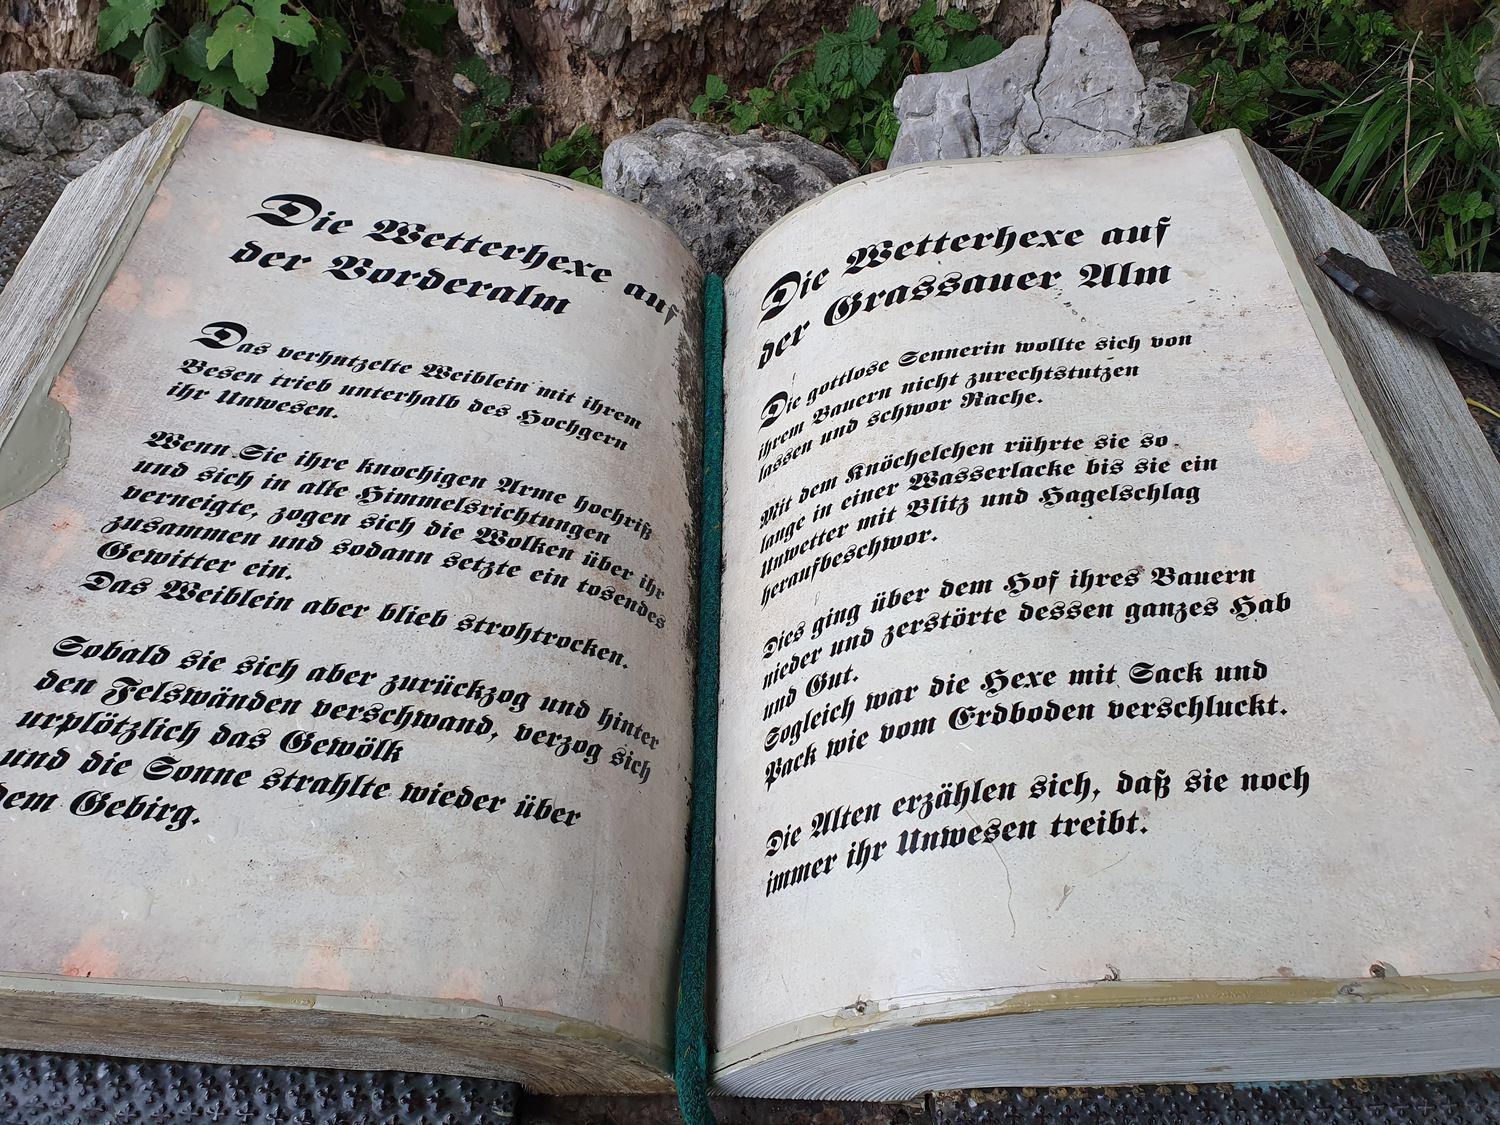 Die Wetterhexe auf
der Vorderalm
Das verhutzelte Weiblein mit ihrem
Besen trieb unterhalb des Hochgern
ihr Unwesen.
Wenn Sie ihre knochigen Arme hochriß
und sich in alle Himmelsrichtungen
verneigte, zogen sich die Wolken über ihr
zusammen und sodann setzte ein tosendes
Gewitter ein.
Das Weiblein aber blieb strohtrocken.
Sobald sie sich aber zurückzog und hinter
den Felswänden verschwand, verzog sich
urplötzlich das Gewölk
und die Sonne strahlte wieder über
dem Gebirg.
Die Wetterhexe auf
der Grassauer Alm
Die gottlose Sennerin wollte sich von
ihrem Bauern nicht zurechtstutzen
lassen und schwor Rache.
Mit dem Knöchelchen rührte sie so
lange in einer Wasserlacke bis sie ein
Unwetter mit Blitz und Hagelschlag
heraufbeschwor.
Dies ging über dem Hof ihres Bauern
nieder und zerstörte dessen ganzes Hab
und Gut.
Sogleich war die Hexe mit Sack und
Pack wie vom Erdboden verschluckt.
Die Alten erzählen sich, daß sie noch
immer ihr Unwesen treibt.